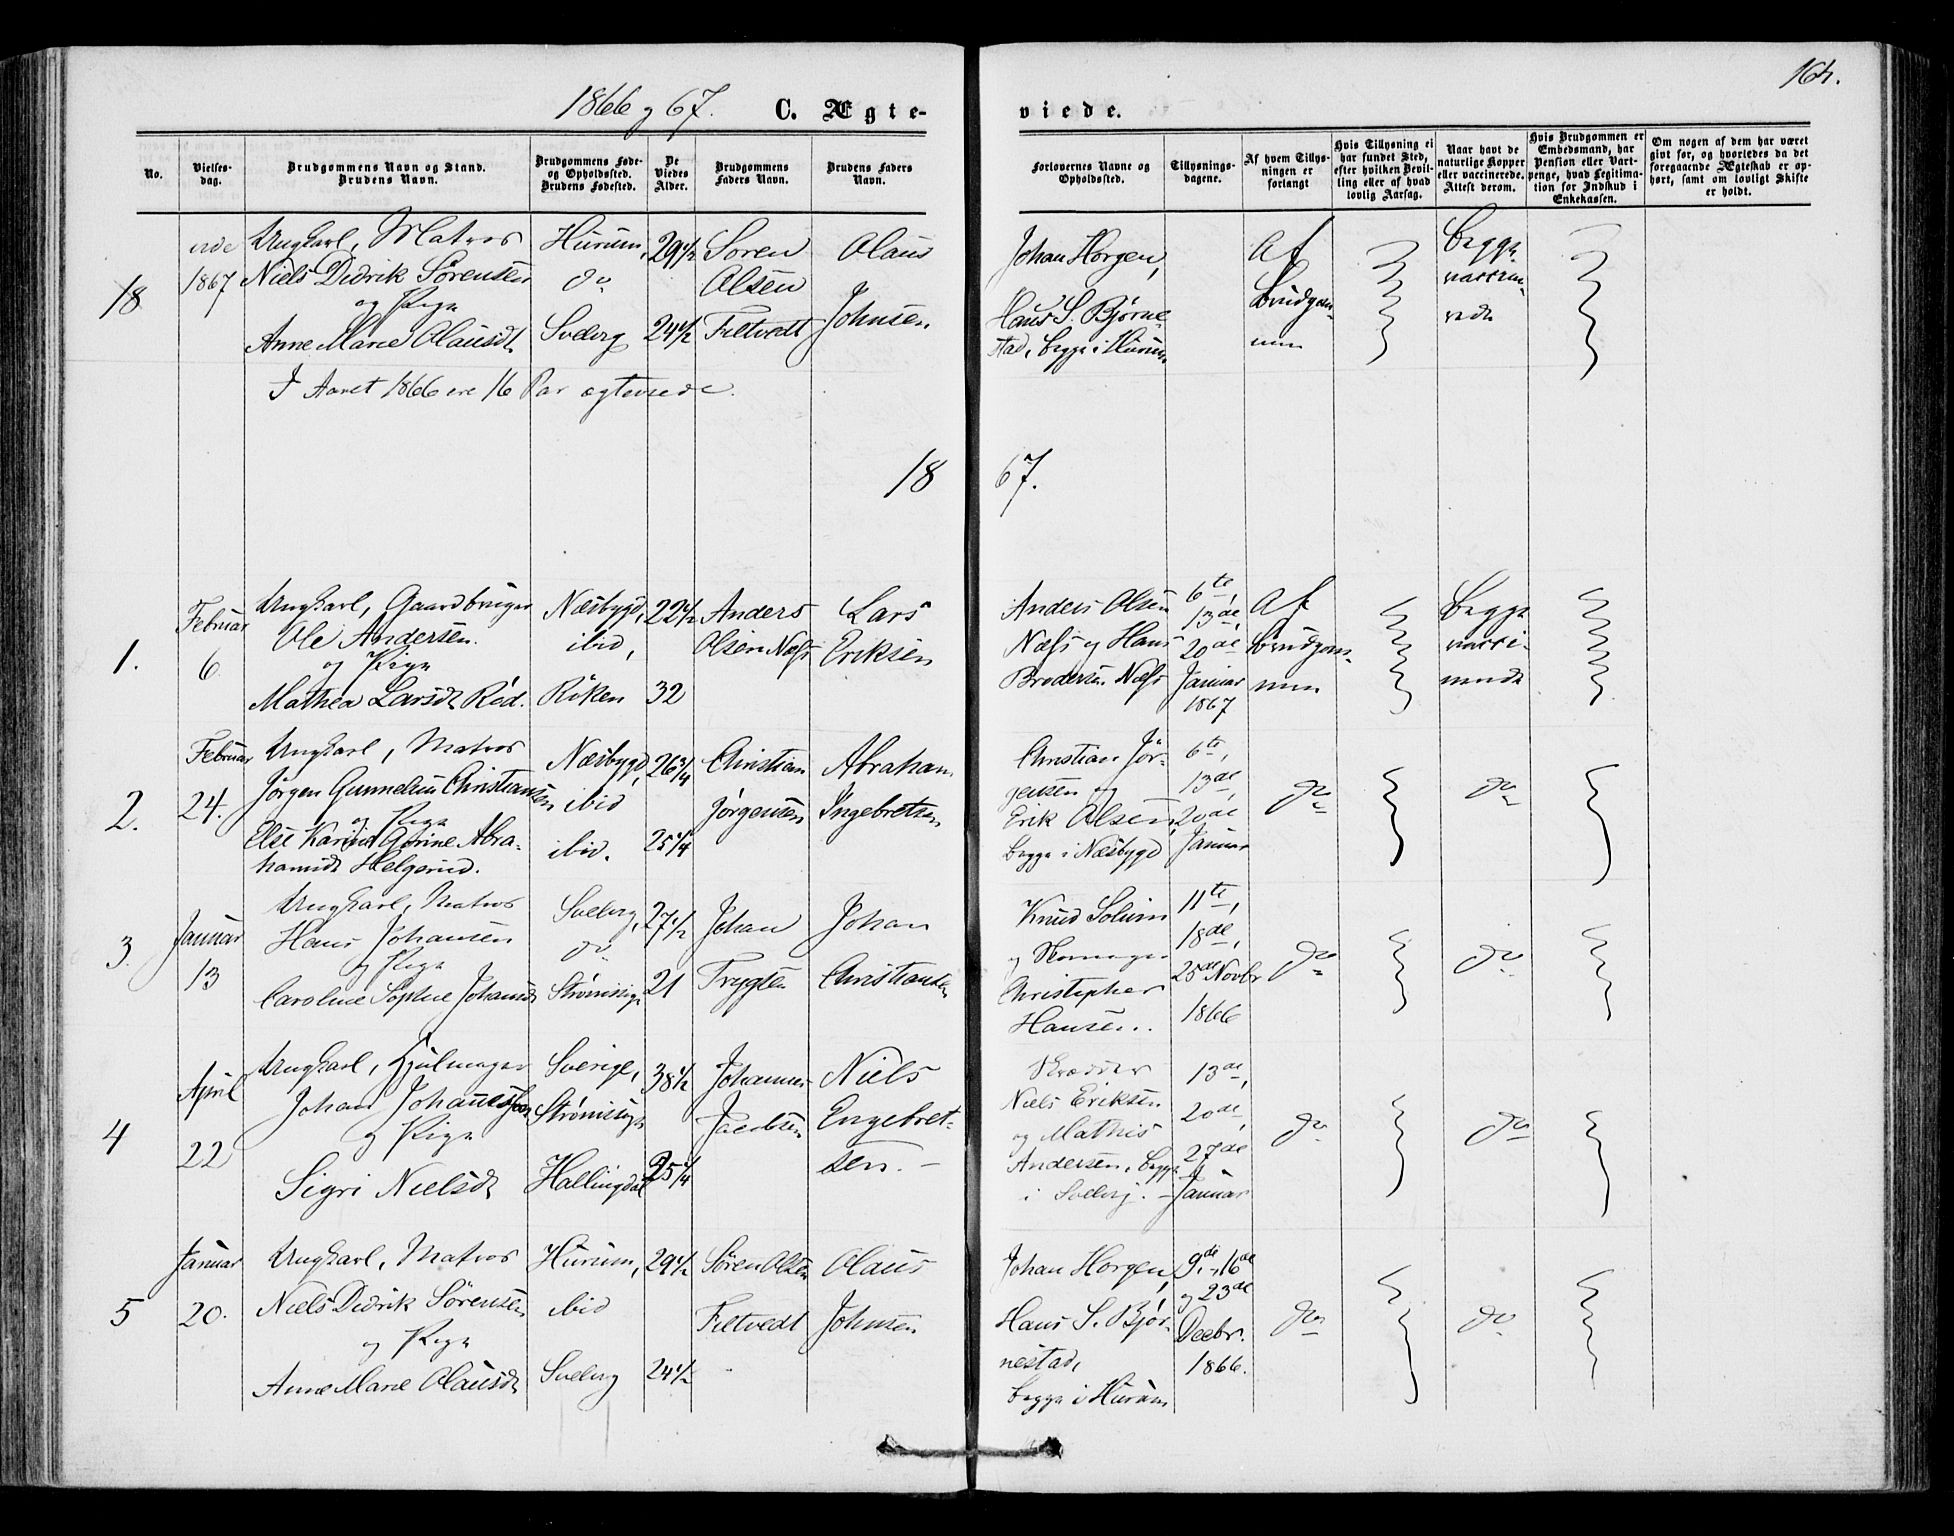 1866 og 67. C. Ægte-
viede.
164.
No.
Vielses-
dag.
Brudgommens Navn og Stand.
Brudens Navn.
Brudgommens Føde-
og Opholdssted.
Brudens Fødested.
De
Viedes
Alder.
Brudgommens
Faders Navn.
Brudens Faders
Navn.
Forlovernes Navne og
Opholdssted.
Tillysnings-
dagene.
Af hvem Tillys-
ningen er
forlangt
Hvis Tillysning ei
har fundet Sted,
efter hvilken Bevil-
ling eller af hvad
lovlig Aarsag.
Naar havt de
naturlige Kopper
eller vaccinerede.
Attest derom.
Hvis Brudgommen er
Embedsmand, har
Pension eller Vart-
penge, hvad Legitima-
tion for Indskud i
Enkekassen.
Om nogen af dem har været
gift før, og hvorledes da det
foregaaende Ægteskab er op-
hørt, samt om lovligt Skifte
er holdt.
18
vide
1867
Ungkarl, Matros
Niels Didrik Sørensen
og Pige
Anne Marie Olausdt
Hurum,
do
Svelvig
29 1/2
24 1/2
Søren
Olsen
Filtvedt
Olaus
Johnsen
Johan Horgen,
Hans S. Bjørne-
stad, begge i Hurum
Af
Brudgom-
men
Begge
vaccine-
rede
I Aaret 1866 ere 16 Par ægteviede.
18 67.
1.
Februar
6
Ungkarl, Gaardbruger
Ole Andersen.
og Pige
Mathea Larsdt Rød.
Næsbygd,
ibid,
Røken
22 1/2
32
Anders
Olsen Næss
Lars
Eriksen
Anders Olsen
Næss og Hans
Brodersen Næss
6te,
13de,
20de
Januar
1867
Af
brudgom-
men
Begge
vacci-
nerede
2.
Februar
24.
Ungkarl, Matros
Jørgen Gunnelius Christiansen
og Pige
Else Karine Gorine Abra-
hamsdt Helgerud.
Næsbygd,
ibid
ibid.
26 3/4
25 1/4
Christian
Jørgensen
Abraham
Ingebretsen
Christian Jør-
gensen og
Erik Olsen,
begge i Næsbygd
6te,
13de,
20de
Januar
do
do
3.
Januar
13
Ungkarl, Matros
Hans Johansen
og Pige
Caroline Sophie Johansdt
Svelvig,
do
Strømssg.
27 1/2
21
Johan
Trygsen
Johan
Christiansen
Knud Solum
og Skomager
Christopher
Hansen.
11te,
18de,
25de Novbr
1866
do
do
4
April
22
Ungkarl, Hjulmager
Johan Johanesson
og Pige
Sigri Nielsdt
Sverige,
Strømssg.
Hallingdal
38 1/2
25 1/4
Johannes
Jacobsen
Niels
Engebret-
sen. -
Skrædder
Niels Eriksen
og Mathis
Andersen, begge
i Svelvig. -
13de,
20de,
27de
Januar
do
do
5
Januar
20.
Ungkarl, Matros
Niels Didrik Sørensen
og Pige
Anne Marie Olausdt
Hurum,
ibid
Svelvig
29 1/2
24 1/2
Søren Olsen
Filtvedt
Olaus
Johnsen
Johan Horgen,
Hans S. Bjør-
nestad,
begge i Hurum
9de, 16de
og 23de
Decbr.
1866.
do
do